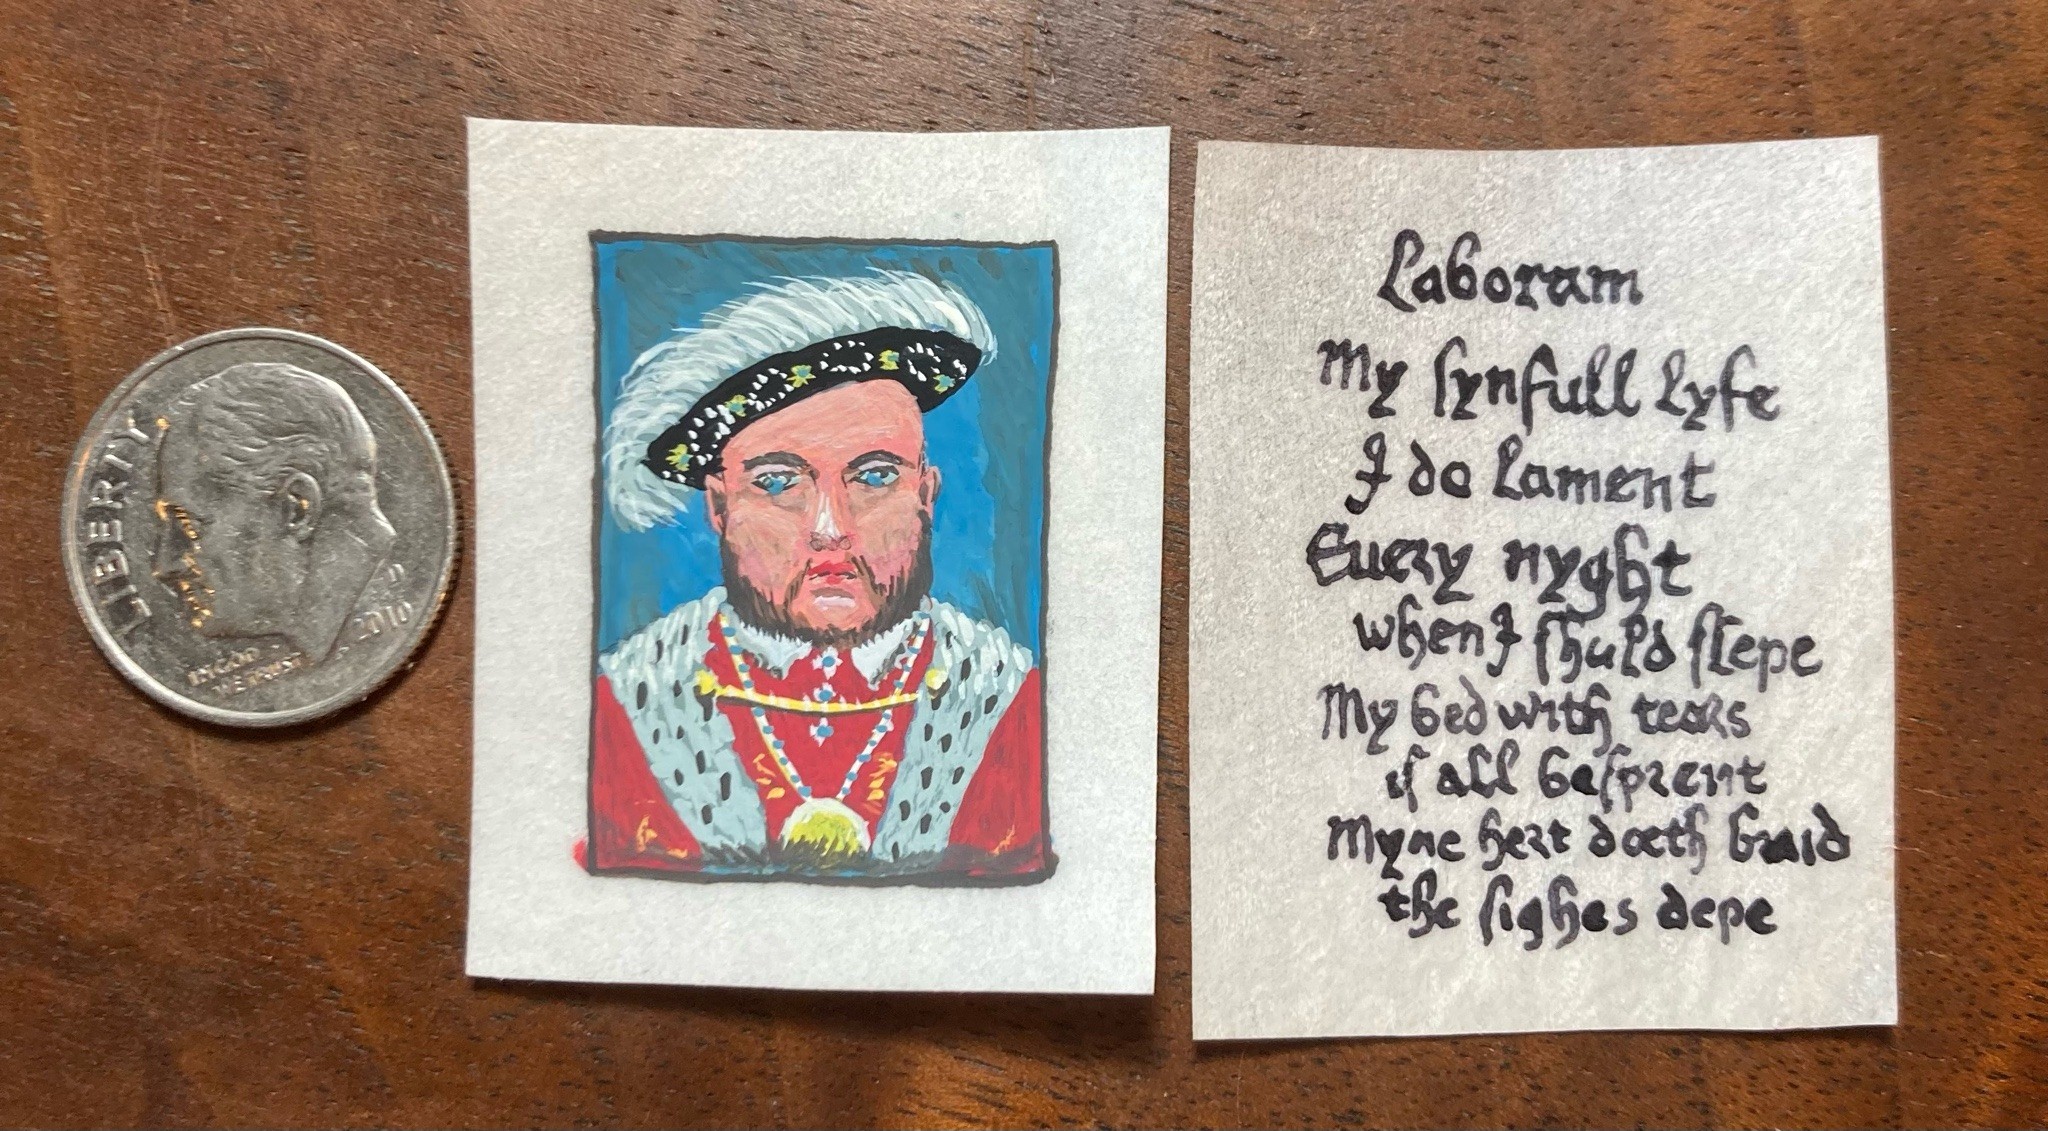 LIBERTY
IN GOD
WE TRUST
D
2010
Laboram
My ſynfull lyfe
I do lament
Euery nyght
when I ſhuld ſlepe
My bed with tears
iſ all beſprent
Myne hert doeth braid
the ſighes depe